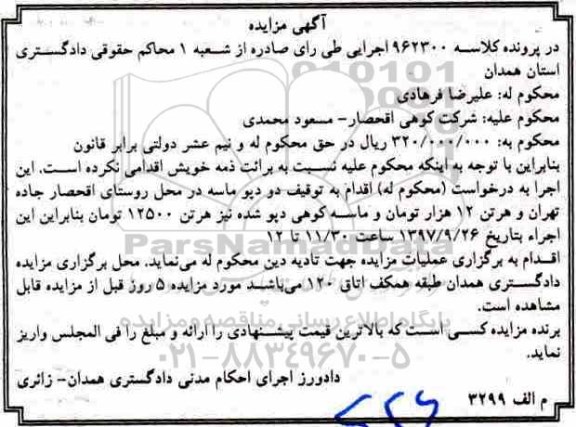 آگهی مزایده
در پرونده کلاسه ۹۶۲۳۰۰ اجرایی طی رای صادره از شعبه ۱ محاکم حقوقی دادگستری
استان همدان
محکوم له: علیرضا فرهادی
محکوم علیه: شرکت کوهی اقحصار- مسعود محمدی
محکوم به: ۳۲۰/۰۰۰/۰۰۰ ریال در حق محکوم له و نیم عشر دولتی برابر قانون
بنابراین با توجه به اینکه محکوم علیه نسبت به برائت ذمه خویش اقدامی نکرده است. این
اجرا به درخواست (محکوم له) اقدام به توقیف دو دپو ماسه در محل روستای اقحصار جاده
تهران و هرتن ۱۲ هزار تومان و ماسه کوهی دپو شده نیز هرتن ۱۲۵۰۰ تومان بنابراین این
اجراء بتاریخ ۱۳۹۷/۹/۲۶ ساعت ۱۱/۳۰ تا ۱۲
اقدام به برگزاری عملیات مزایده جهت تادیه دین محکوم له می‌نماید. محل برگزاری مزایده
دادگستری همدان طبقه همکف اتاق ۱۲۰ می‌باشد مورد مزایده ۵ روز قبل از مزایده قابل
مشاهده است.
برنده مزایده کسی است که بالاترین قیمت پیشنهادی را ارائه و مبلغ را فی المجلس واریز
نماید.
دادورز اجرای احکام مدنی دادگستری همدان- زائری
م الف ۳۲۹۹
ParsNamadData
پایگاه اطلاع رسانی مناقصه و مزایده
۰۲۱-۸۸۳۴۹۶۷۰-۵